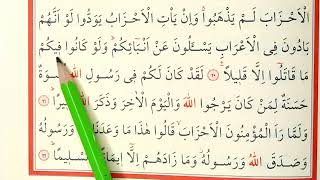 الْاَحْزَابَ لَمْ يَذْهَبُواۚ وَاِنْ يَأْتِ الْاَحْزَابُ يَوَدُّوا لَوْ اَنَّهُمْ
بَادُونَ فِي الْاَعْرَابِ يَسْـَٔلُونَ عَنْ اَنْبَٓائِكُمْۜ وَلَوْ كَانُوا فِيكُمْ
مَا قَاتَلُٓوا اِلَّا قَلِيلًا ﴿٢٠﴾ لَقَدْ كَانَ لَكُمْ فِي رَسُولِ اللّٰهِ اُسْوَةٌ
حَسَنَةٌ لِمَنْ كَانَ يَرْجُوا اللّٰهَ وَالْيَوْمَ الْاٰخِرَ وَذَكَرَ اللّٰهَ كَثِيرًا ﴿٢١﴾
وَلَمَّا رَاَ الْمُؤْمِنُونَ الْاَحْزَابَۙ قَالُوا هٰذَا مَا وَعَدَنَا اللّٰهُ وَرَسُولُهُ
وَصَدَقَ اللّٰهُ وَرَسُولُهُۘ وَمَا زَادَهُمْ اِلَّٓا اِيمَانًا وَتَسْلِيمًا ﴿٢٢﴾